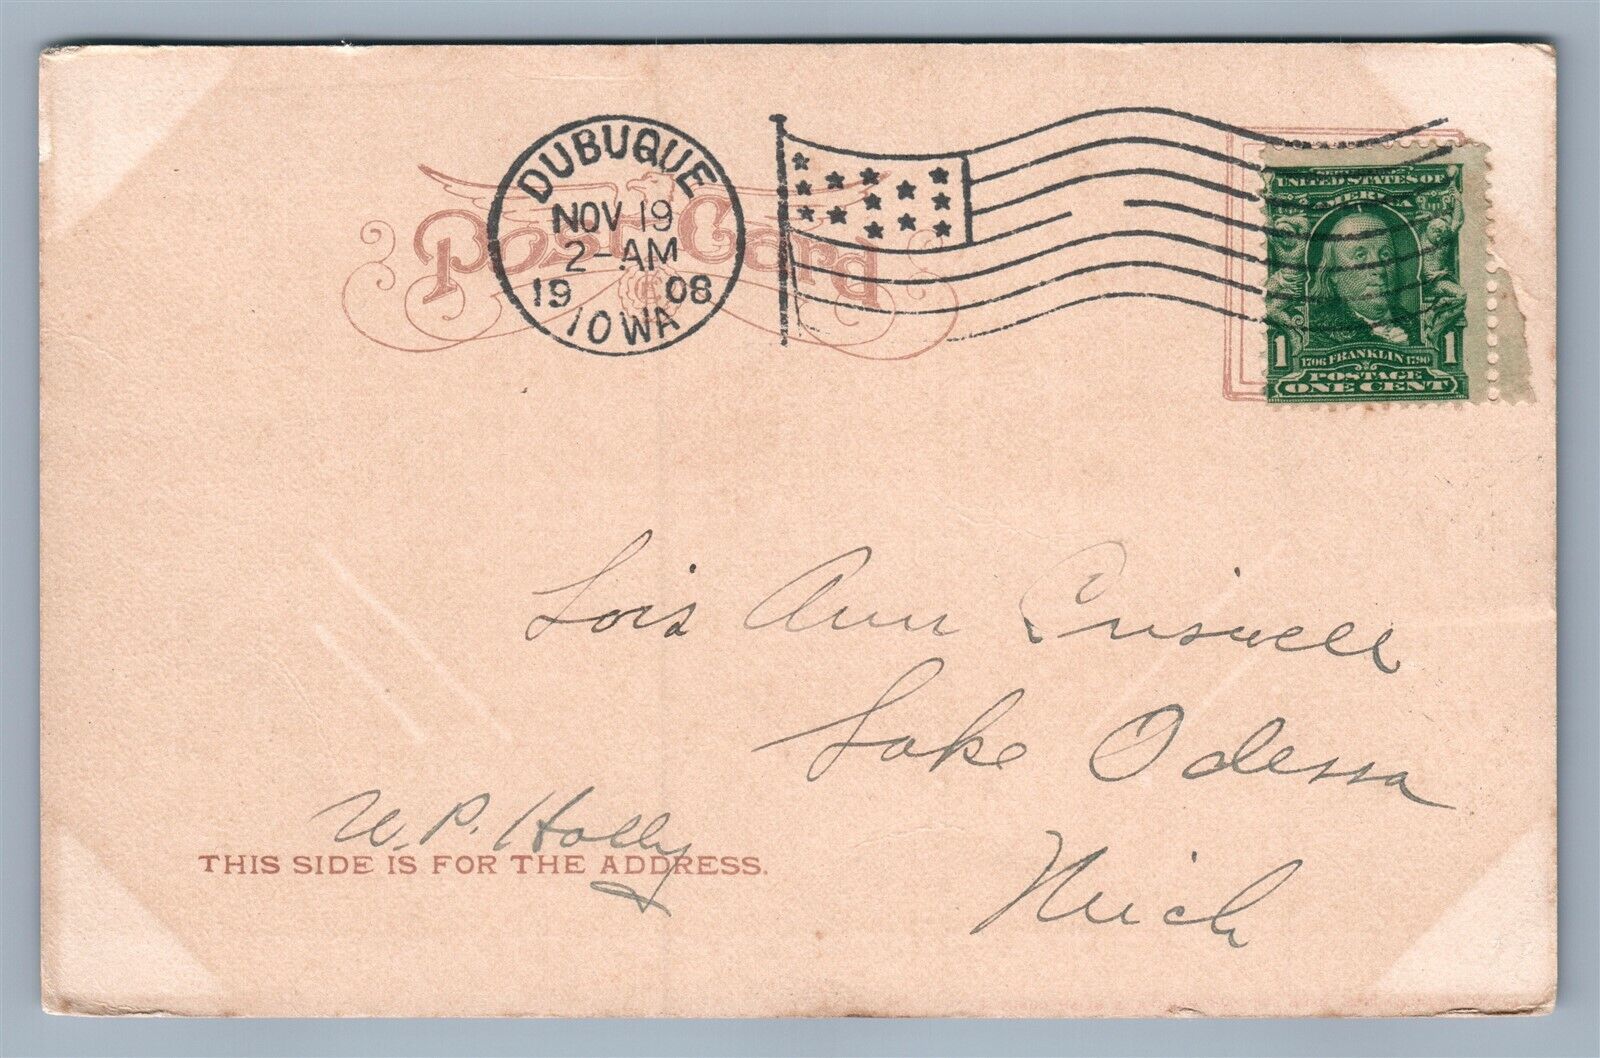 DUBUQUE
NOV 19
2-AM
19 08
IOWA
Post Card
UNITED STATES OF
AMERICA
1 1706 FRANKLIN 1790 1
POSTAGE
ONE CENT
Lois Ann Criswell
Lake Odessa
Mich
W. P. Holly
THIS SIDE IS FOR THE ADDRESS.